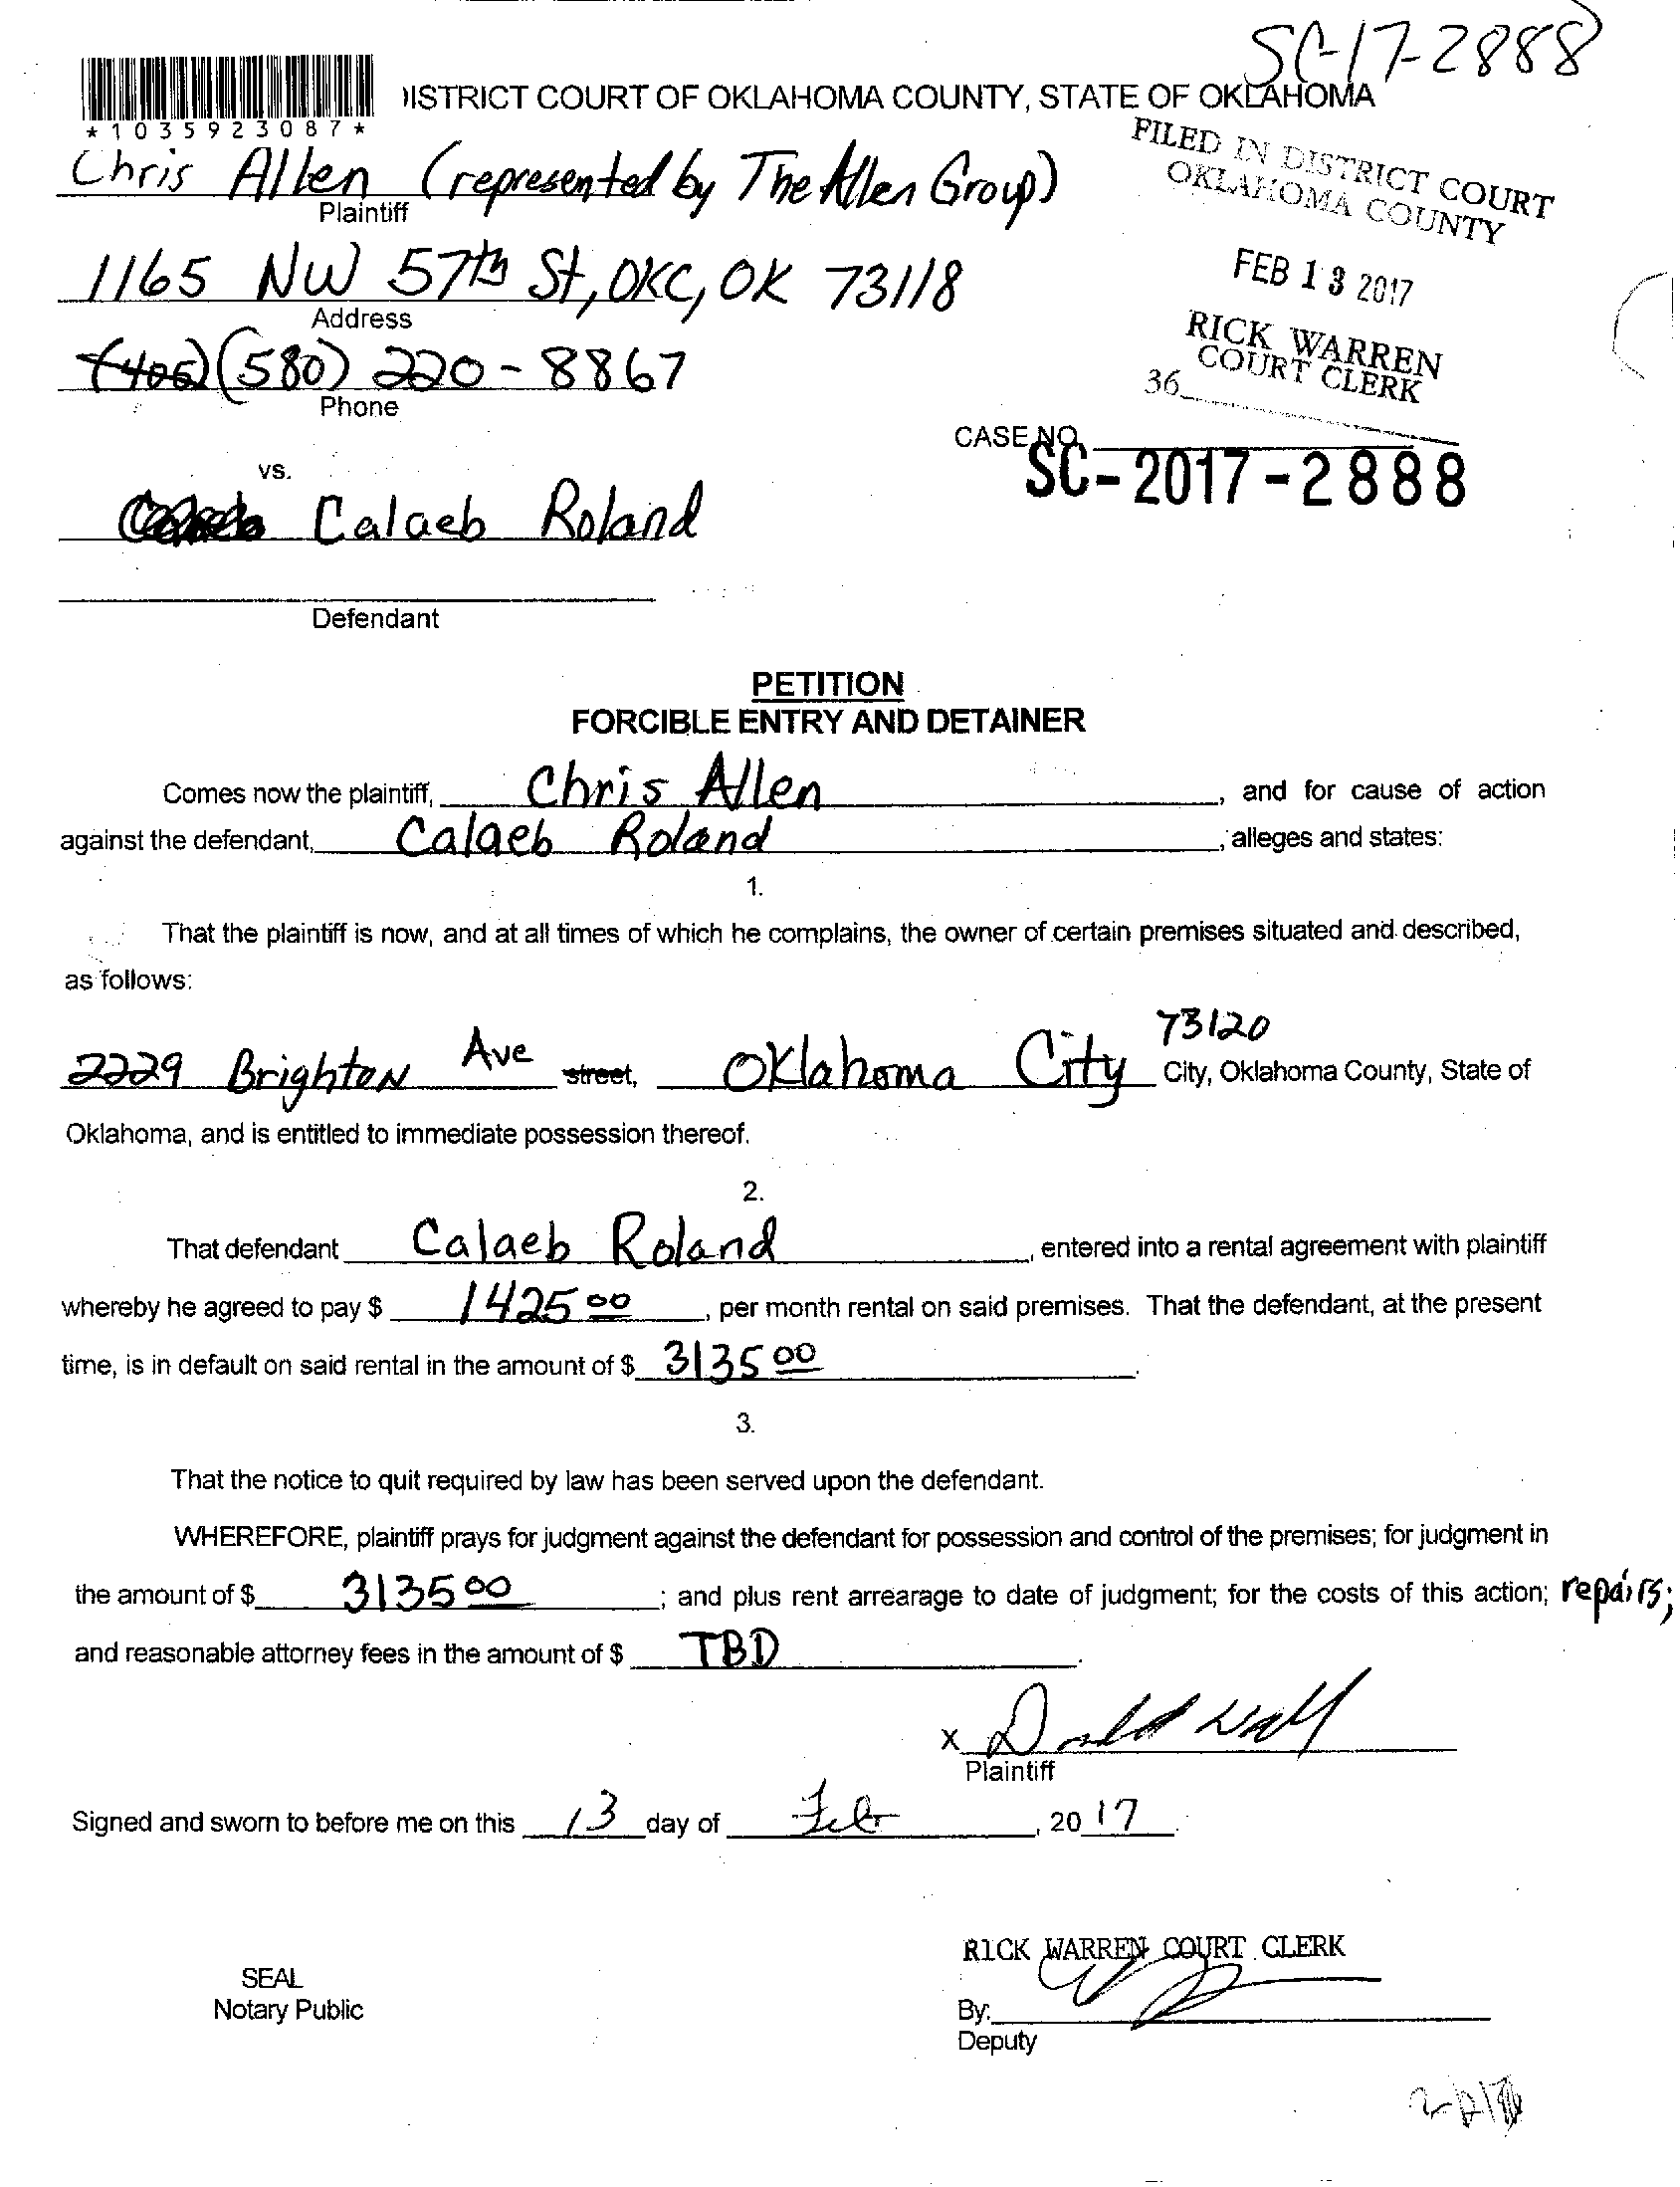 SC-17-2888
*1035923087*
DISTRICT COURT OF OKLAHOMA COUNTY, STATE OF OKLAHOMA
FILED IN DISTRICT COURT
OKLAHOMA COUNTY
Chris Allen (represented by The Allen Group)
Plaintiff
1165 NW 57th St, OKC, OK 73118
Address
FEB 13 2017
RICK WARREN
COURT CLERK
36
(405) (580) 220-8867
Phone
CASE NO.
SC-2017-2888
vs.
Calaeb Roland
Defendant
PETITION
FORCIBLE ENTRY AND DETAINER
Comes now the plaintiff, Chris Allen, and for cause of action
against the defendant, Calaeb Roland, alleges and states:
1.
That the plaintiff is now, and at all times of which he complains, the owner of certain premises situated and described,
as follows:
73120
2229 Brighton Ave street, Oklahoma City City, Oklahoma County, State of
Oklahoma, and is entitled to immediate possession thereof.
2.
That defendant Calaeb Roland, entered into a rental agreement with plaintiff
whereby he agreed to pay $ 1425 00, per month rental on said premises. That the defendant, at the present
time, is in default on said rental in the amount of $ 3135 00.
3.
That the notice to quit required by law has been served upon the defendant.
WHEREFORE, plaintiff prays for judgment against the defendant for possession and control of the premises; for judgment in
the amount of $ 3135 00; and plus rent arrearage to date of judgment; for the costs of this action; repairs;
and reasonable attorney fees in the amount of $ TBD.
X
Plaintiff
Signed and sworn to before me on this 13 day of Feb, 20 17.
RICK WARREN COURT CLERK
SEAL
Notary Public
By:
Deputy